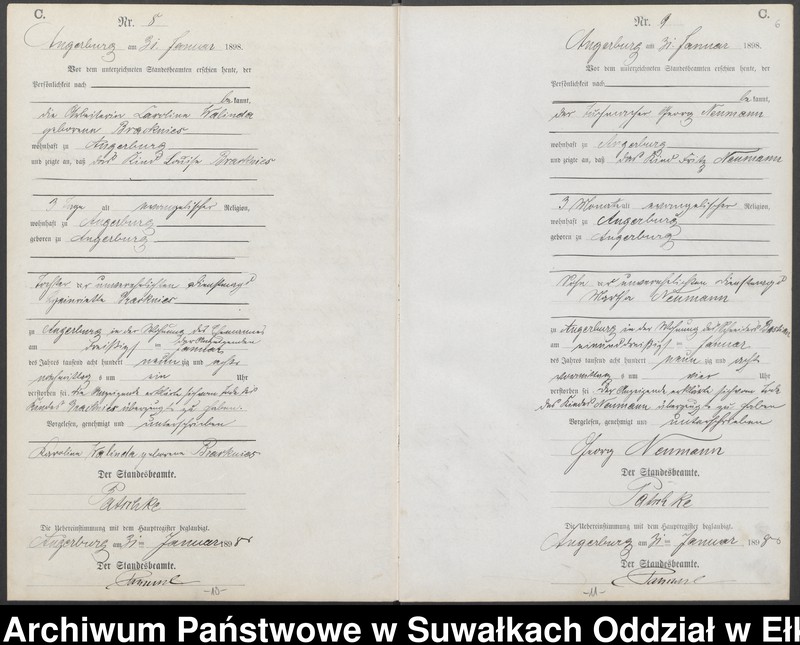 C.
Nr. 8
Angerburg am 31. Januar 1898.
Vor dem unterzeichneten Standesbeamten erschien heute, der
Persönlichkeit nach
be kannt,
die Arbeiterin Karoline Kalinda
geborene Bracknies
wohnhaft zu Angerburg
und zeigte an, daß das Kind Louise Bracknies
3 Tage alt evangelischer Religion,
wohnhaft zu Angerburg
geboren zu Angerburg
Tochter der unverehelichten Dienstmagd
Henriette Bracknies
zu Angerburg in der Wohnung des Ehemannes
der Anzeigenden
am dreißigsten Januar
des Jahres tausend acht hundert neun zig und acht
nachmittags um ein Uhr
verstorben sei. Die Anzeigende erklärte sich vom Tode des
Kindes Bracknies überzeugt zu haben.
Vorgelesen, genehmigt und unterschrieben
Karoline Kalinda geborene Bracknies
Der Standesbeamte.
Patschke
Die Uebereinstimmung mit dem Hauptregister beglaubigt.
Angerburg am 31ten Januar 1898
Der Standesbeamte.
-10-
C.
6
Nr. 9
Angerburg am 31. Januar 1898.
Vor dem unterzeichneten Standesbeamten erschien heute, der
Persönlichkeit nach
be kannt,
der Tuchmacher Georg Neumann
wohnhaft zu Angerburg
und zeigte an, daß das Kind Fritz Neumann
3 Monate alt evangelischer Religion,
wohnhaft zu Angerburg
geboren zu Angerburg
Sohn der unverehelichten Dienstmagd
Martha Neumann
zu Angerburg in der Wohnung des
am einunddreißigsten Januar
des Jahres tausend acht hundert neun zig und acht
vormittags um vier Uhr
verstorben sei. Der Anzeigende erklärte sich vom Tode
des Kindes Neumann überzeugt zu haben
Vorgelesen, genehmigt und unterschrieben
Georg Neumann
Der Standesbeamte.
Patschke
Die Uebereinstimmung mit dem Hauptregister beglaubigt.
Angerburg am 31ten Januar 1898
Der Standesbeamte.
-11-
Archiwum Państwowe w Suwałkach Oddział w Ełk